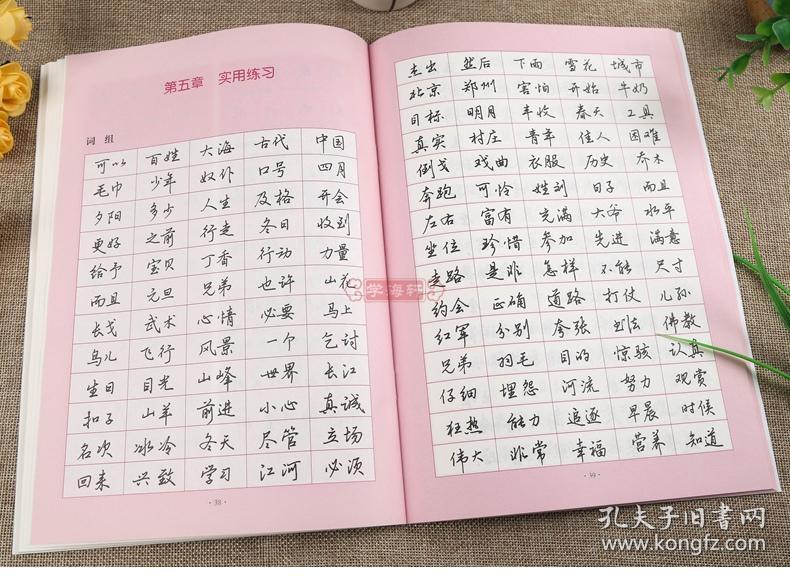 第五章 实用练习
词组
可以 百姓 大海 古代 中国
毛巾 少年 奴仆 口号 四月
夕阳 多少 人生 及格 开会
更好 之前 行走 冬日 收到
给予 宝贝 丁香 行动 力量
而且 元旦 兄弟 也许 山花
长戈 武术 心情 必要 马上
鸟儿 飞行 风景 一个 乞讨
生日 目光 山峰 世界 长江
扣子 山羊 前进 小心 真诚
名次 冰冷 冬天 尽管 立场
回来 兴致 学习 江河 必须
·38·
走出 然后 下雨 雪花 城市
北京 郑州 害怕 开始 牛奶
目标 明月 丰收 春天 工具
真实 村庄 青年 佳人 困难
倒戈 戏曲 衣服 历史 乔木
奔跑 可怜 姓刘 日子 而且
左右 富有 充满 大爷 水平
坐位 珍惜 参加 先进 满意
走路 是非 怎样 不能 尺寸
约会 正确 道路 打仗 儿孙
红军 分别 夸张 书法 佛教
兄弟 羽毛 目的 惊骇 认真
仔细 埋怨 河流 努力 观赏
狂热 能力 追逐 早晨 时候
伟大 非常 幸福 营养 知道
·39·
学海轩
孔夫子旧书网
www.kongfz.com